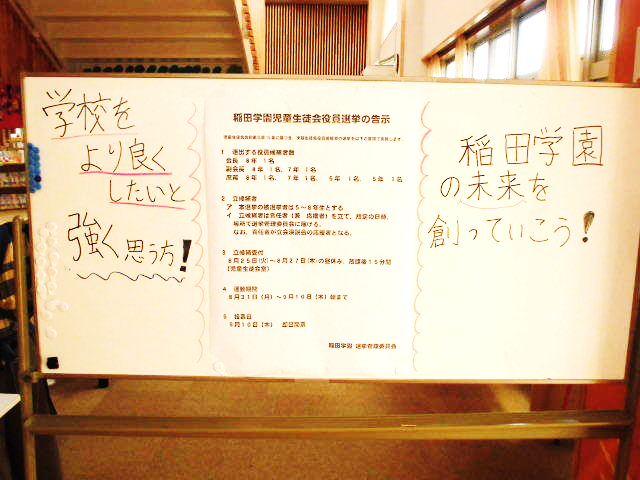 学校を
より良く
したいと
強く思う方!
稲田学園児童生徒会役員選挙の告示
1 選出する役員候補者数
会長 8年 1名
副会長 8年 1名、7年 1名
庶務 8年 1名、 7年 1名、 6年 1名、 5年 1名
2 立候補者
ア 本選挙の被選挙者は5~8年生とする
イ 立候補者は責任者(兼 応援者)を立て、所定の日時、
場所で選挙管理委員会に届ける。
なお、責任者が立会演説会の応援者となる。
3 立候補受付
8月25日(火)~8月27日(木)の昼休み、放課後15分間
(児童生徒会室)
4 運動期間
8月31日(月)~9月10日(木)朝まで
5 投票日
9月10日(木) 即日開票
稲田学園 選挙管理委員会
稲田学園
の未来を
創っていこう!